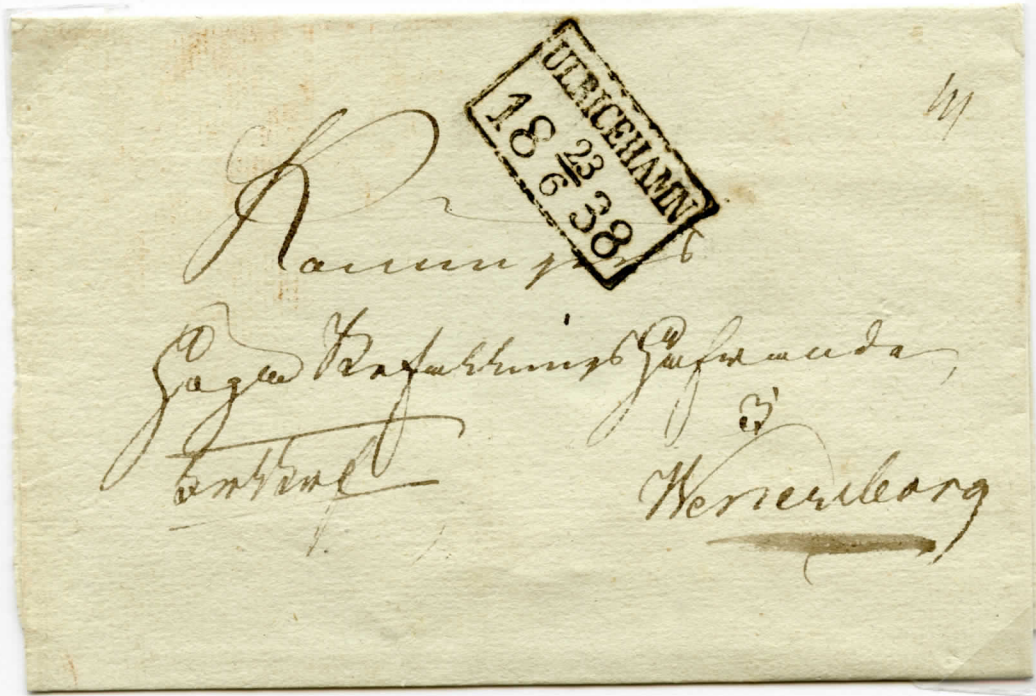 ULRICEHAMN
18 23/6 38
Konungens
Höga Befallningshafvande
i
Wenersborg